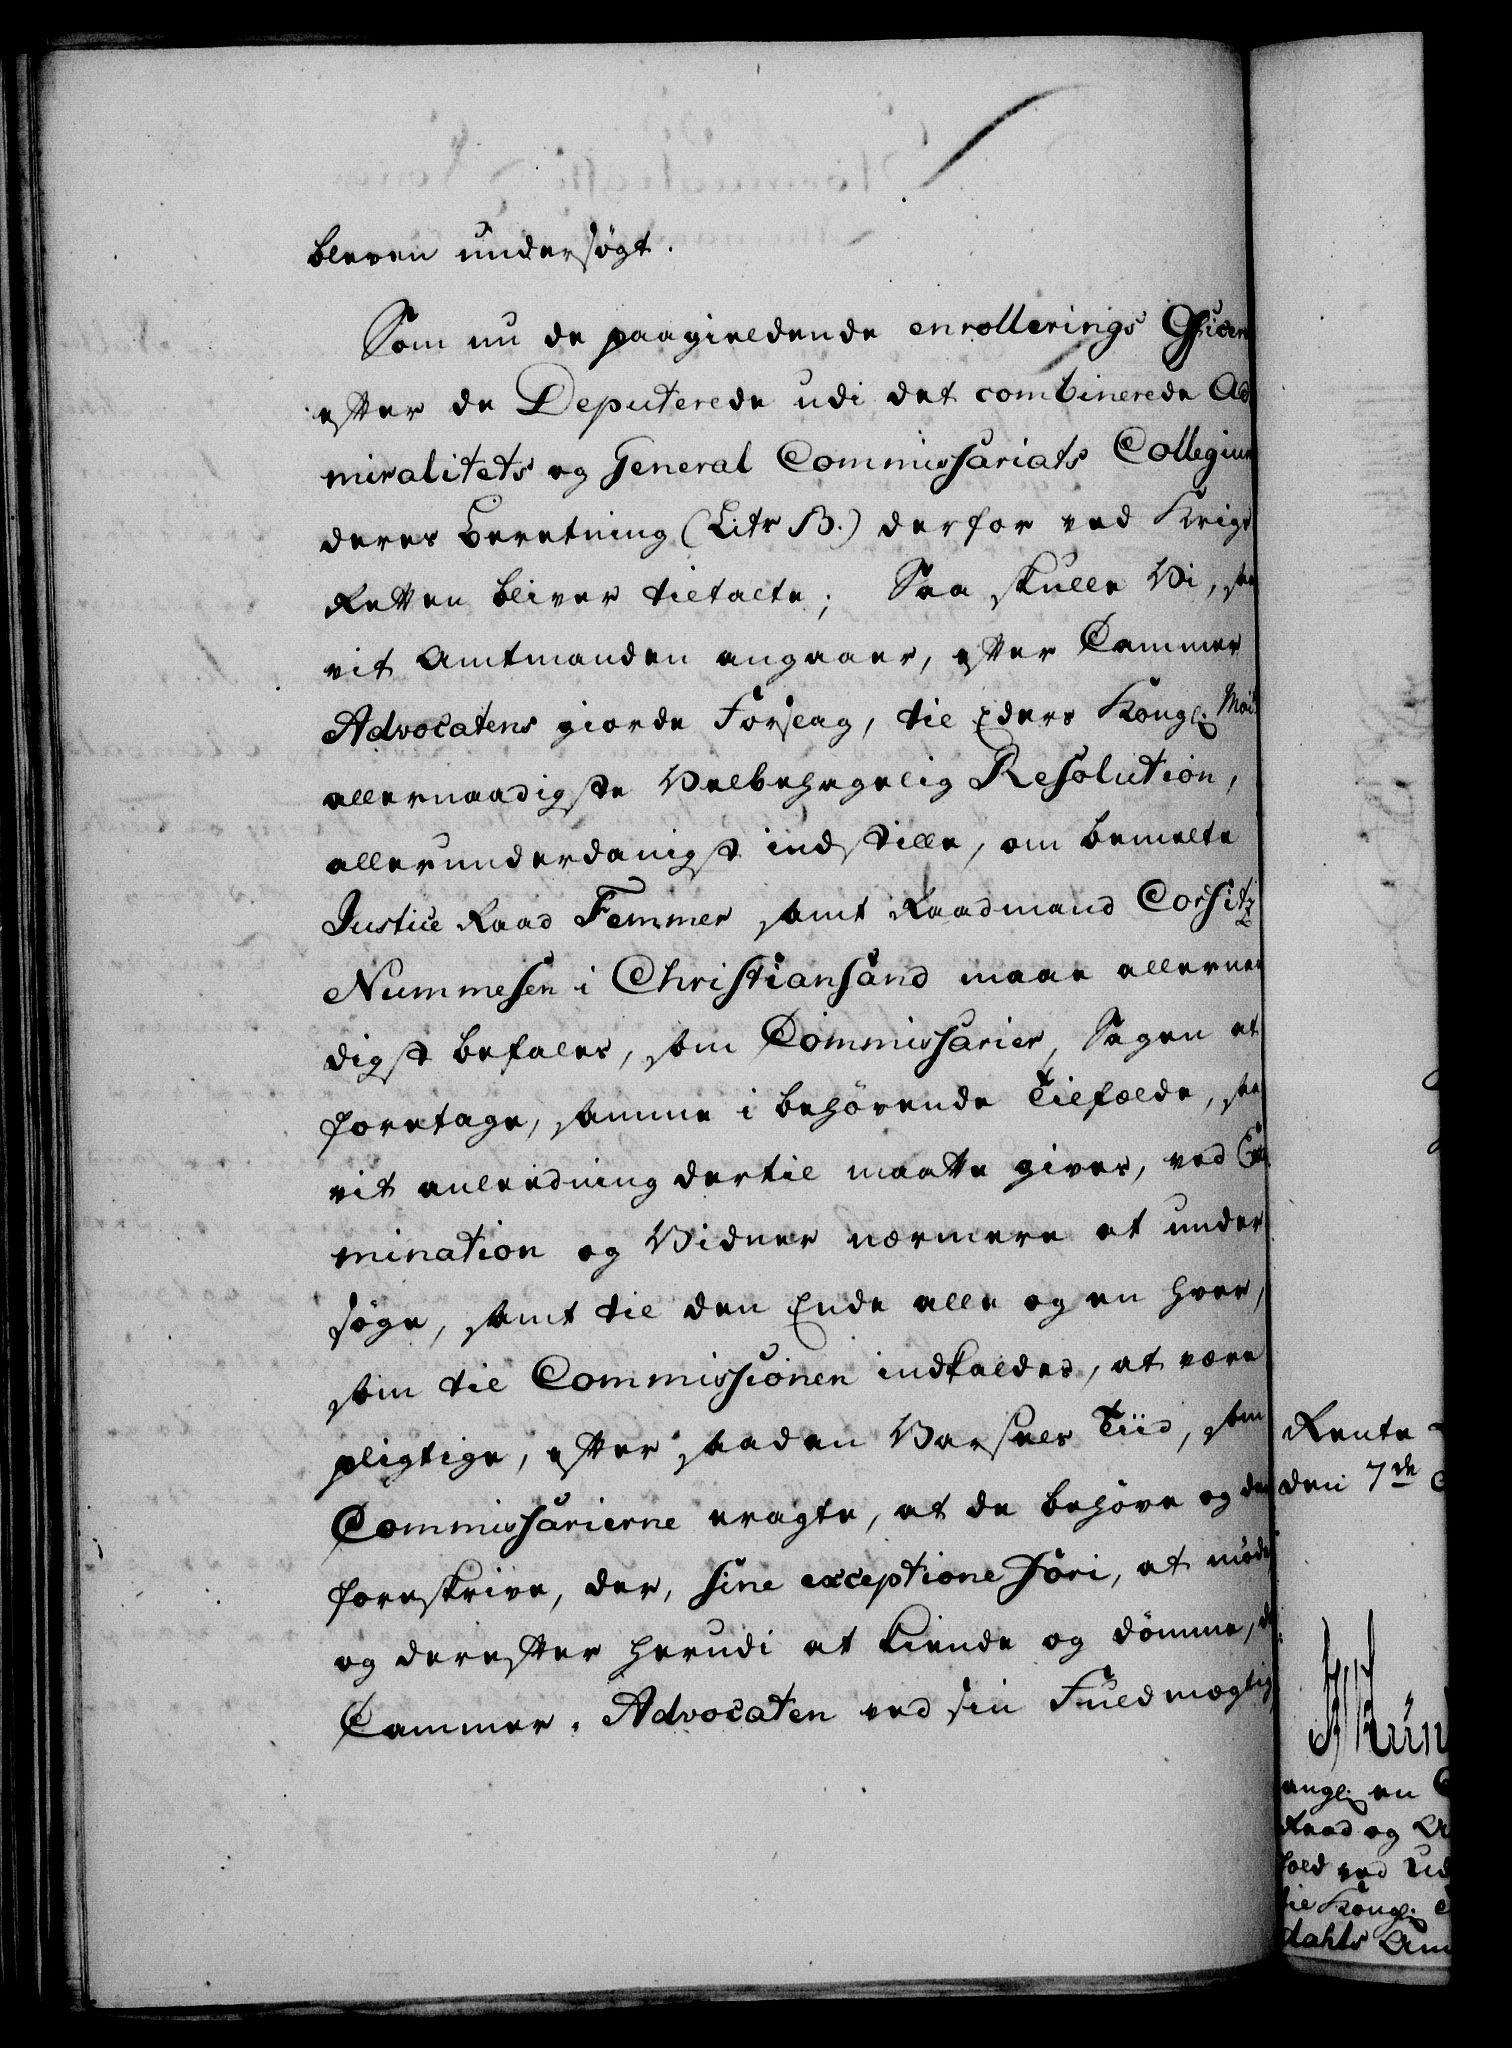 bleven undersøgt.
Som nu de paagieldende enrollerings Officerer
efter de Deputerede udi det combinerede Ad
miralitets og General Commissariats Collegium
deres Beretning (Litr B.) derfor ved Krigs
Retten bliver tiltalte; Saa skulle Vi, saa
vit Amtmanden angaaer, efter Cammer
Advocatens giorde Forslag, til Eders Kongl. Mai
allernaadigste Velbehagelig Resolution,
allerunderdanigst indstille, om bemelte
Justice Raad Femmer samt Raadmand Corfitz
Nummesen i Christiansand maae allernaa
digst befales, som Commissarier, Sagen at
foretage, samme i behörende Tilfælde, saa
vit anleedning dertil maatte gives, ved Exa
mination og Vidner nærmere at under
søge, samt til den Ende alle og en hver,
som til Commissionen indkaldes, at være
pligtige, efter saaden Varsels Tiid, som
Commissarierne eragte, at de behöve og der
foreskrive, der, sine exceptione fori, at möde
og derefter herudi at kiende og dömme, da
Cammer-Advocaten ved sin Fuldmægtig
Rente
den 7de
angl. en
Raad og
hold ved Ud
til Kongl.
dahls Am